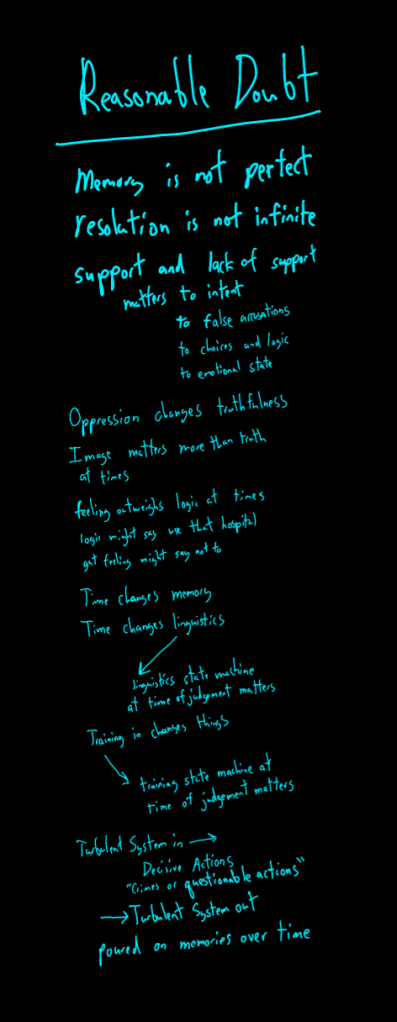 Reasonable Doubt
Memory is not perfect
resolution is not infinite
support and lack of support
matters to intent
to false accusations
to choices and logic
to emotional state
Oppression changes truthfulness
Image matters more than truth
at times
feeling outweighs logic at times
logic might say use that hospital
gut feeling might say not to
Time changes memory
Time changes linguistics
linguistics state machine
at time of judgement matters
Training in changes things
training state machine at
time of judgement matters
Turbulent System in →
Decisive Actions
"Crimes or questionable actions"
→ Turbulent System out
poured on memories over time